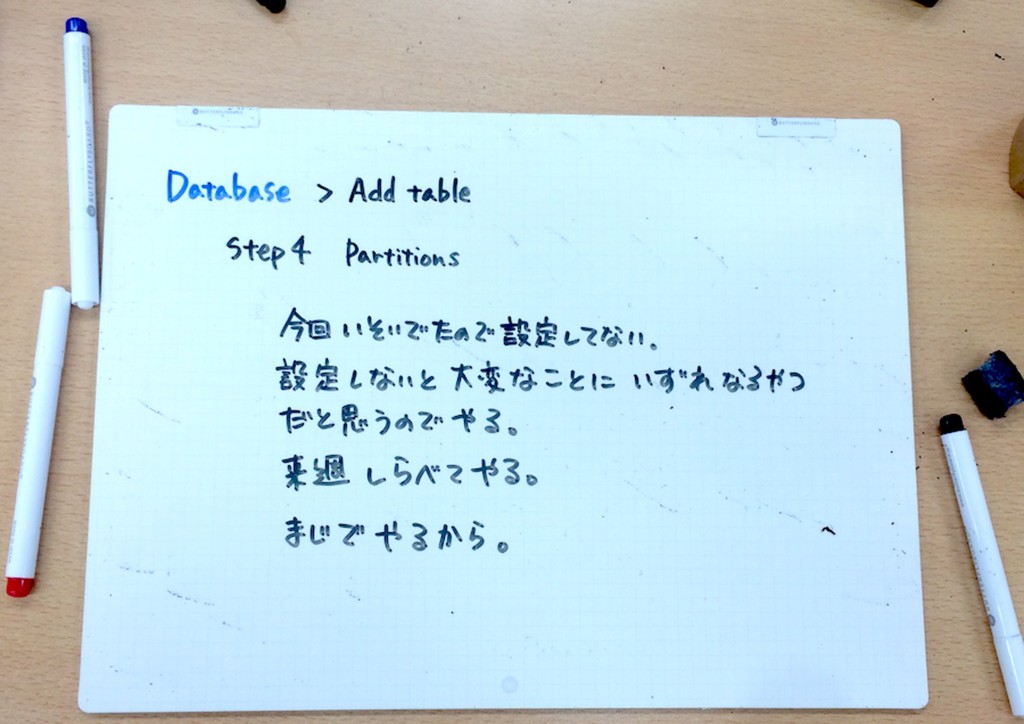 Database > Add table
Step 4 Partitions
今回いそいでたので設定してない。
設定しないと大変なことにいずれなるやつ
だと思うのでやる。
来週しらべてやる。
まじでやるから。